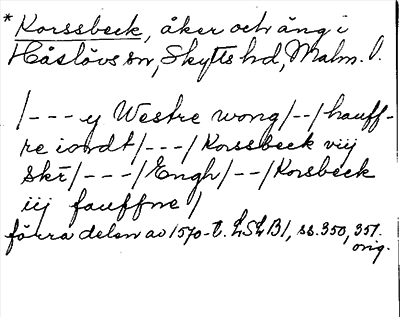 * Korssbeck, åker och äng i
Håslövs sn, Skytts hd, Malm. l.
/---y Westre wong/--/hauff-
re iordt/---/Korssbeck viij
skr̄/---/Engh/--/Korsbeck
iij fauffne/
förra delen av 1570-t. LSLB1, ss. 350, 351.
orig.